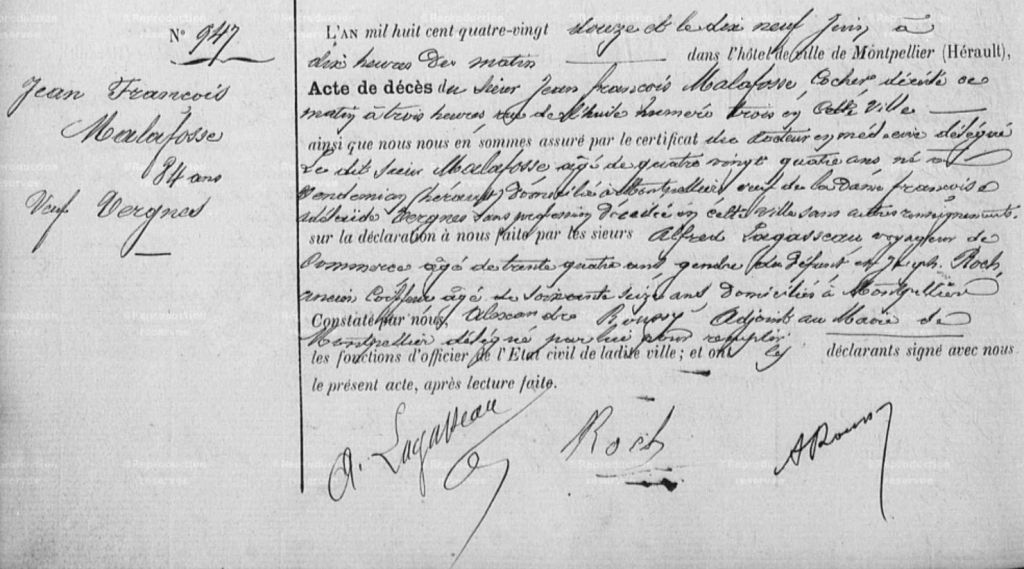 N° 947
Jean Francois
Malafosse
84 ans
Veuf Vergnes
L'AN mil huit cent quatre-vingt douze et le dix neuf Juin à
dix heures du matin dans l'hôtel de ville de Montpellier (Hérault),
Acte de décès du sieur Jean françois Malafosse, Cocher, décédé ce
matin à trois heures, rue de l'huile numéro trois en cette ville
ainsi que nous nous en sommes assuré par le certificat du docteur en médecine délégué
Le dit sieur Malafosse agé de quatre vingt quatre ans né à
Vendemian (hérault) domicilié à Montpellier veuf de la Dame françoise
adélaïde Vergnes sans profession Décédée en cette ville sans autres renseignements.
sur la déclaration à nous faite par les sieurs Alfred Lagasseau voyageur de
Commerce agé de trente quatre ans, gendre du défunt et Joseph Roch,
ancien Coiffeur agé de soixante seize ans Domiciliés à Montpellier
Constaté par nous, Alexandre Roussy Adjoint au Maire de
Montpellier délégué par lui pour remplir
les fonctions d'officier de l'Etat civil de ladite ville ; et ont les déclarants signé avec nous
le présent acte, après lecture faite.
A. Lagasseau Roch